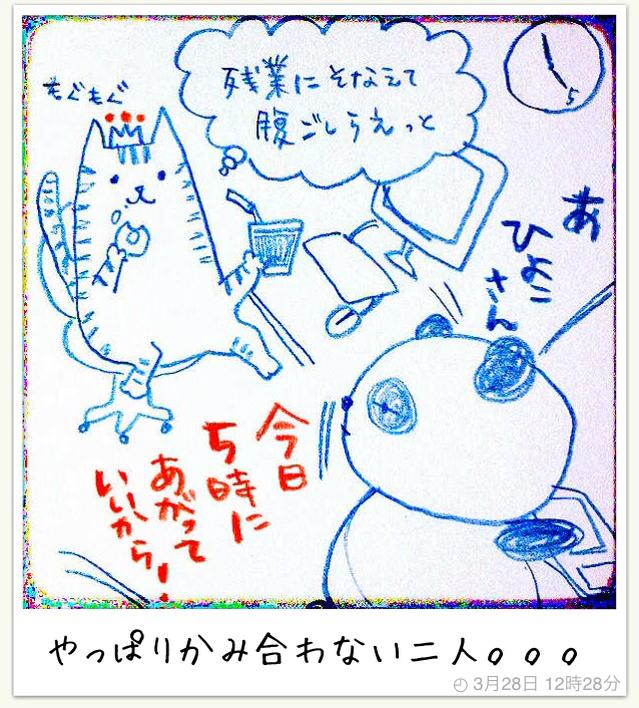 もぐもぐ
残業にそなえて
腹ごしらえっと
5
あ
ひよこ
さん
今日
5時に
あがって
いいから!
やっぱりかみ合わない二人。。。
3月28日 12時28分